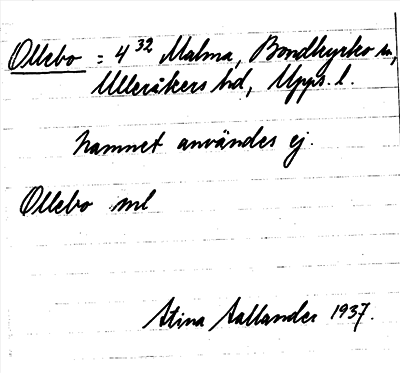 Ollebo = 4³² Malma, Bondkyrko sn,
Ulleråkers hd, Upps. l.
Namnet användes ej.
Ollebo ml
Stina Aallander 1937.